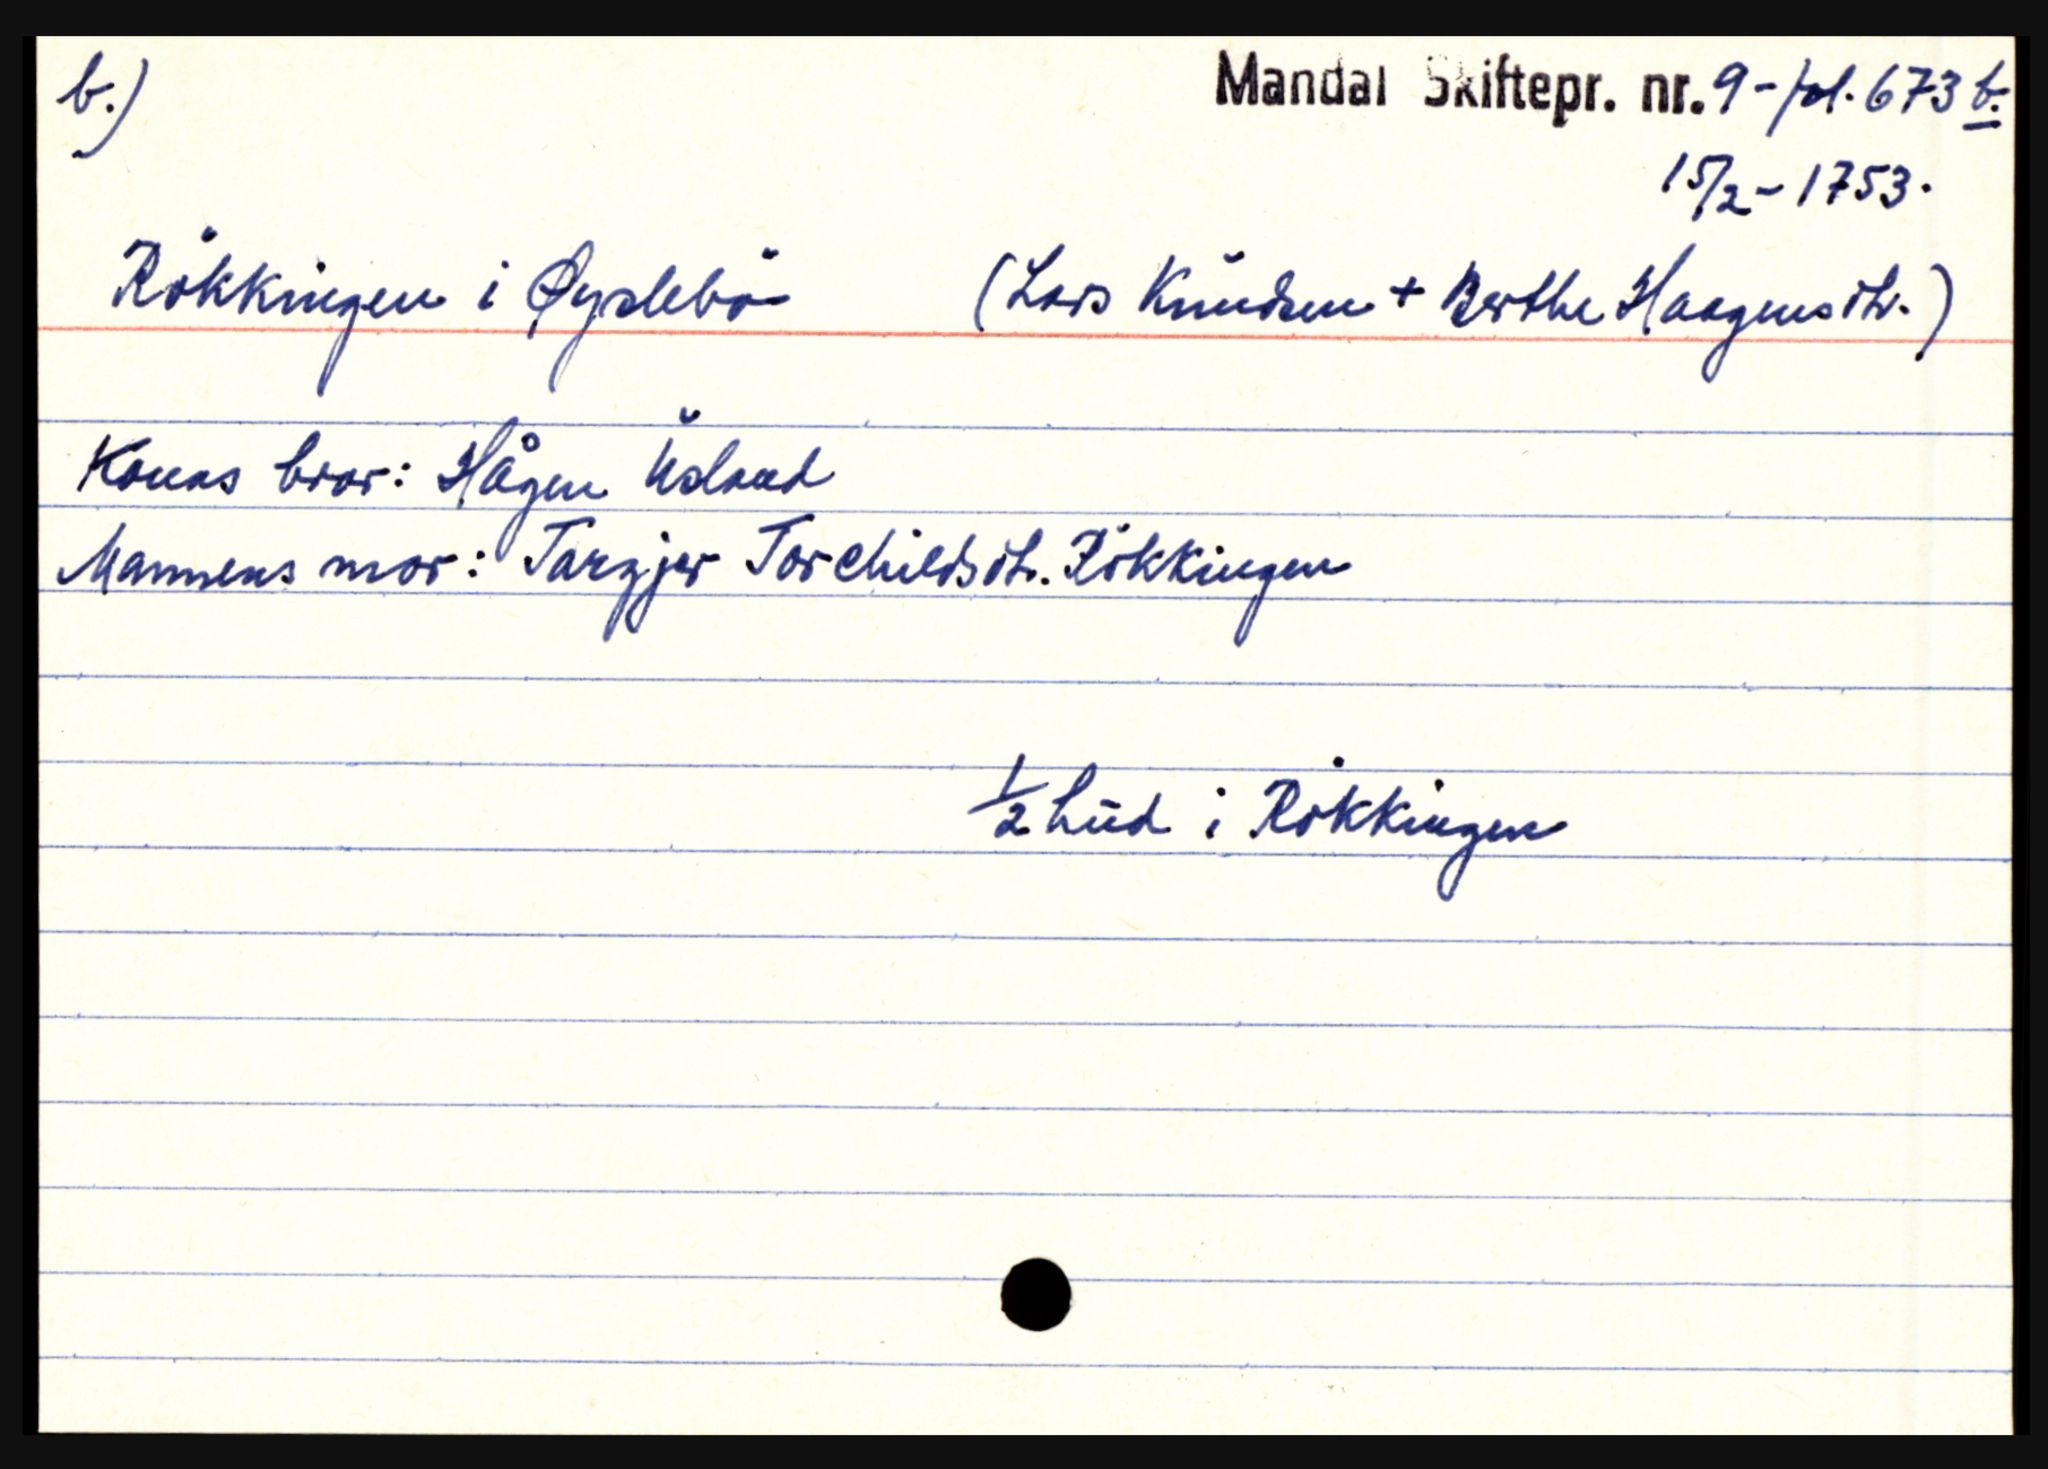 b.) Mandal Skiftepr. nr. 9 - fol. 673 b.
15/2 - 1753.
Rökkingen i Øyslebö (Lars Knudsen + Berthe Haagensdtr.)
Konas bror: Hågen Usland
Mannens mor: Targjer Torchildsdtr. Rökkingen
1/2 hud i Rökkingen